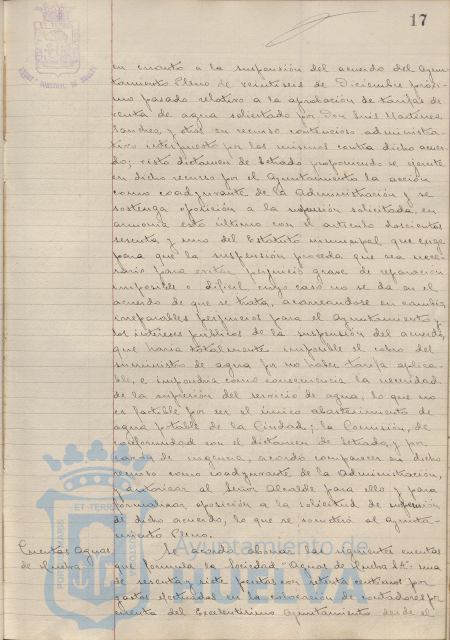 17
en cuanto a la suspensión del acuerdo del Ayun-
tamiento Pleno de veintiseis de Diciembre próxi-
mo pasado relativo a la aprobación de tarifas de
venta de agua solicitado por Don Luis Martinez
Sanchez y otros en recurso contencioso administra-
tivo interpuesto por los mismos contra dicho acuer-
do; visto dictamen de Letrado proponiendo se ejercite
en dicho recurso por el Ayuntamiento la acción
como coadyuvante de la Administración y se
sostenga oposición a la suspensión solicitada, en
armonia esto último con el articulo doscientos
sesenta y uno del Estatuto municipal que exige
para que la suspensión proceda que sea nece-
sario para evitar perjuicio grave de reparación
imposible o dificil cuyo caso no se da en el
acuerdo de que se trata, irrogandose en cambio
irreparables perjuicios para el Ayuntamiento y
los intereses públicos de la suspensión del acuerdo,
que haria totalmente imposible el cobro del
suministro de agua por no haber tarifa aplica-
ble, e impondria como consecuencia la necesidad
de la supresión del servicio de agua, lo que no
es factible por ser el único abastecimiento de
agua potable de la Ciudad; la Comisión, de
conformidad con el dictamen de Letrado, y por
razón de urgencia, acordó comparecer en dicho
recurso como coadyuvante de la Administración,
y autorizar al Señor Alcalde para ello y para
formalizar oposición a la solicitud de suspensión
de dicho acuerdo, lo que se someterá al Ayunta-
miento Pleno.
Cuentas Aguas
de Huelva
Se acordó abonar las siguientes cuentas
que formula la Sociedad "Aguas de Huelva S.A." una
de sesenta y siete pesetas con setenta centimos por
gastos efectuados en la colocación de contadores por
cuenta del Excelentisimo Ayuntamiento desde el
ET TERRAE
Ayuntamiento de
HUELVA